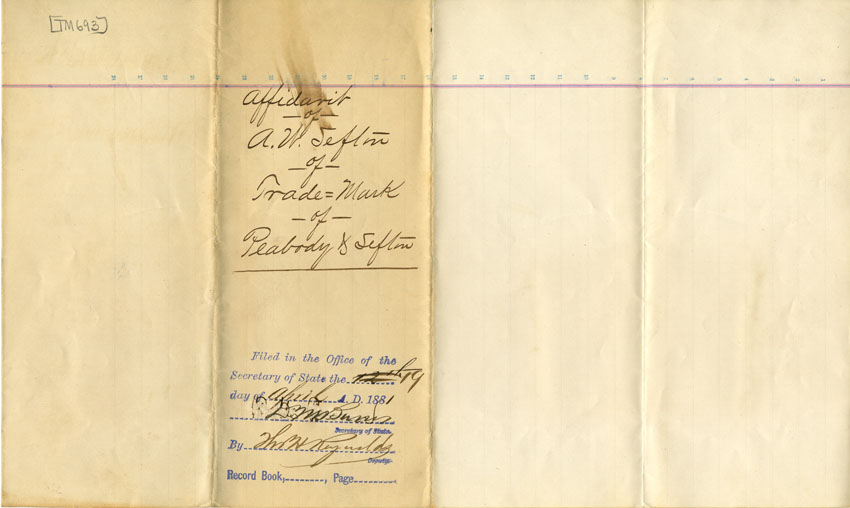 [TM693]
Affidavit
– of –
A. W. Sefton
– of –
Trade=Mark
– of –
Peabody & Sefton
Filed in the Office of the
Secretary of State the 12th 19
day of April A. D. 1881
Secretary of State.
By Thos H Reynolds
Deputy.
Record Book, Page